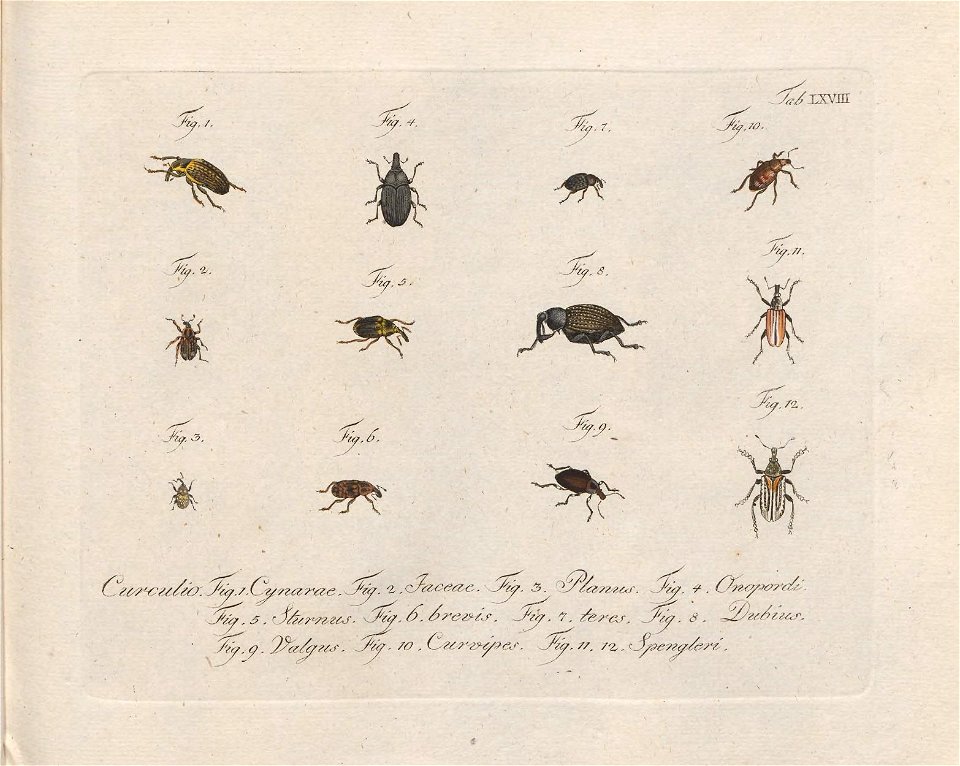 Tab LXVIII
Fig. 1. Fig. 4. Fig. 7. Fig. 10.
Fig. 2. Fig. 5. Fig. 8. Fig. 11.
Fig. 3. Fig. 6. Fig. 9. Fig. 12.
Curculio. Fig. 1 Cynarae. Fig. 2. Jaceae. Fig. 3. Planus. Fig. 4. Onopordi.
Fig. 5. Sturnus. Fig. 6. brevis. Fig. 7. teres. Fig. 8. Dubius.
Fig. 9. Valgus. Fig. 10. Curvipes. Fig. 11. 12. Spengleri.